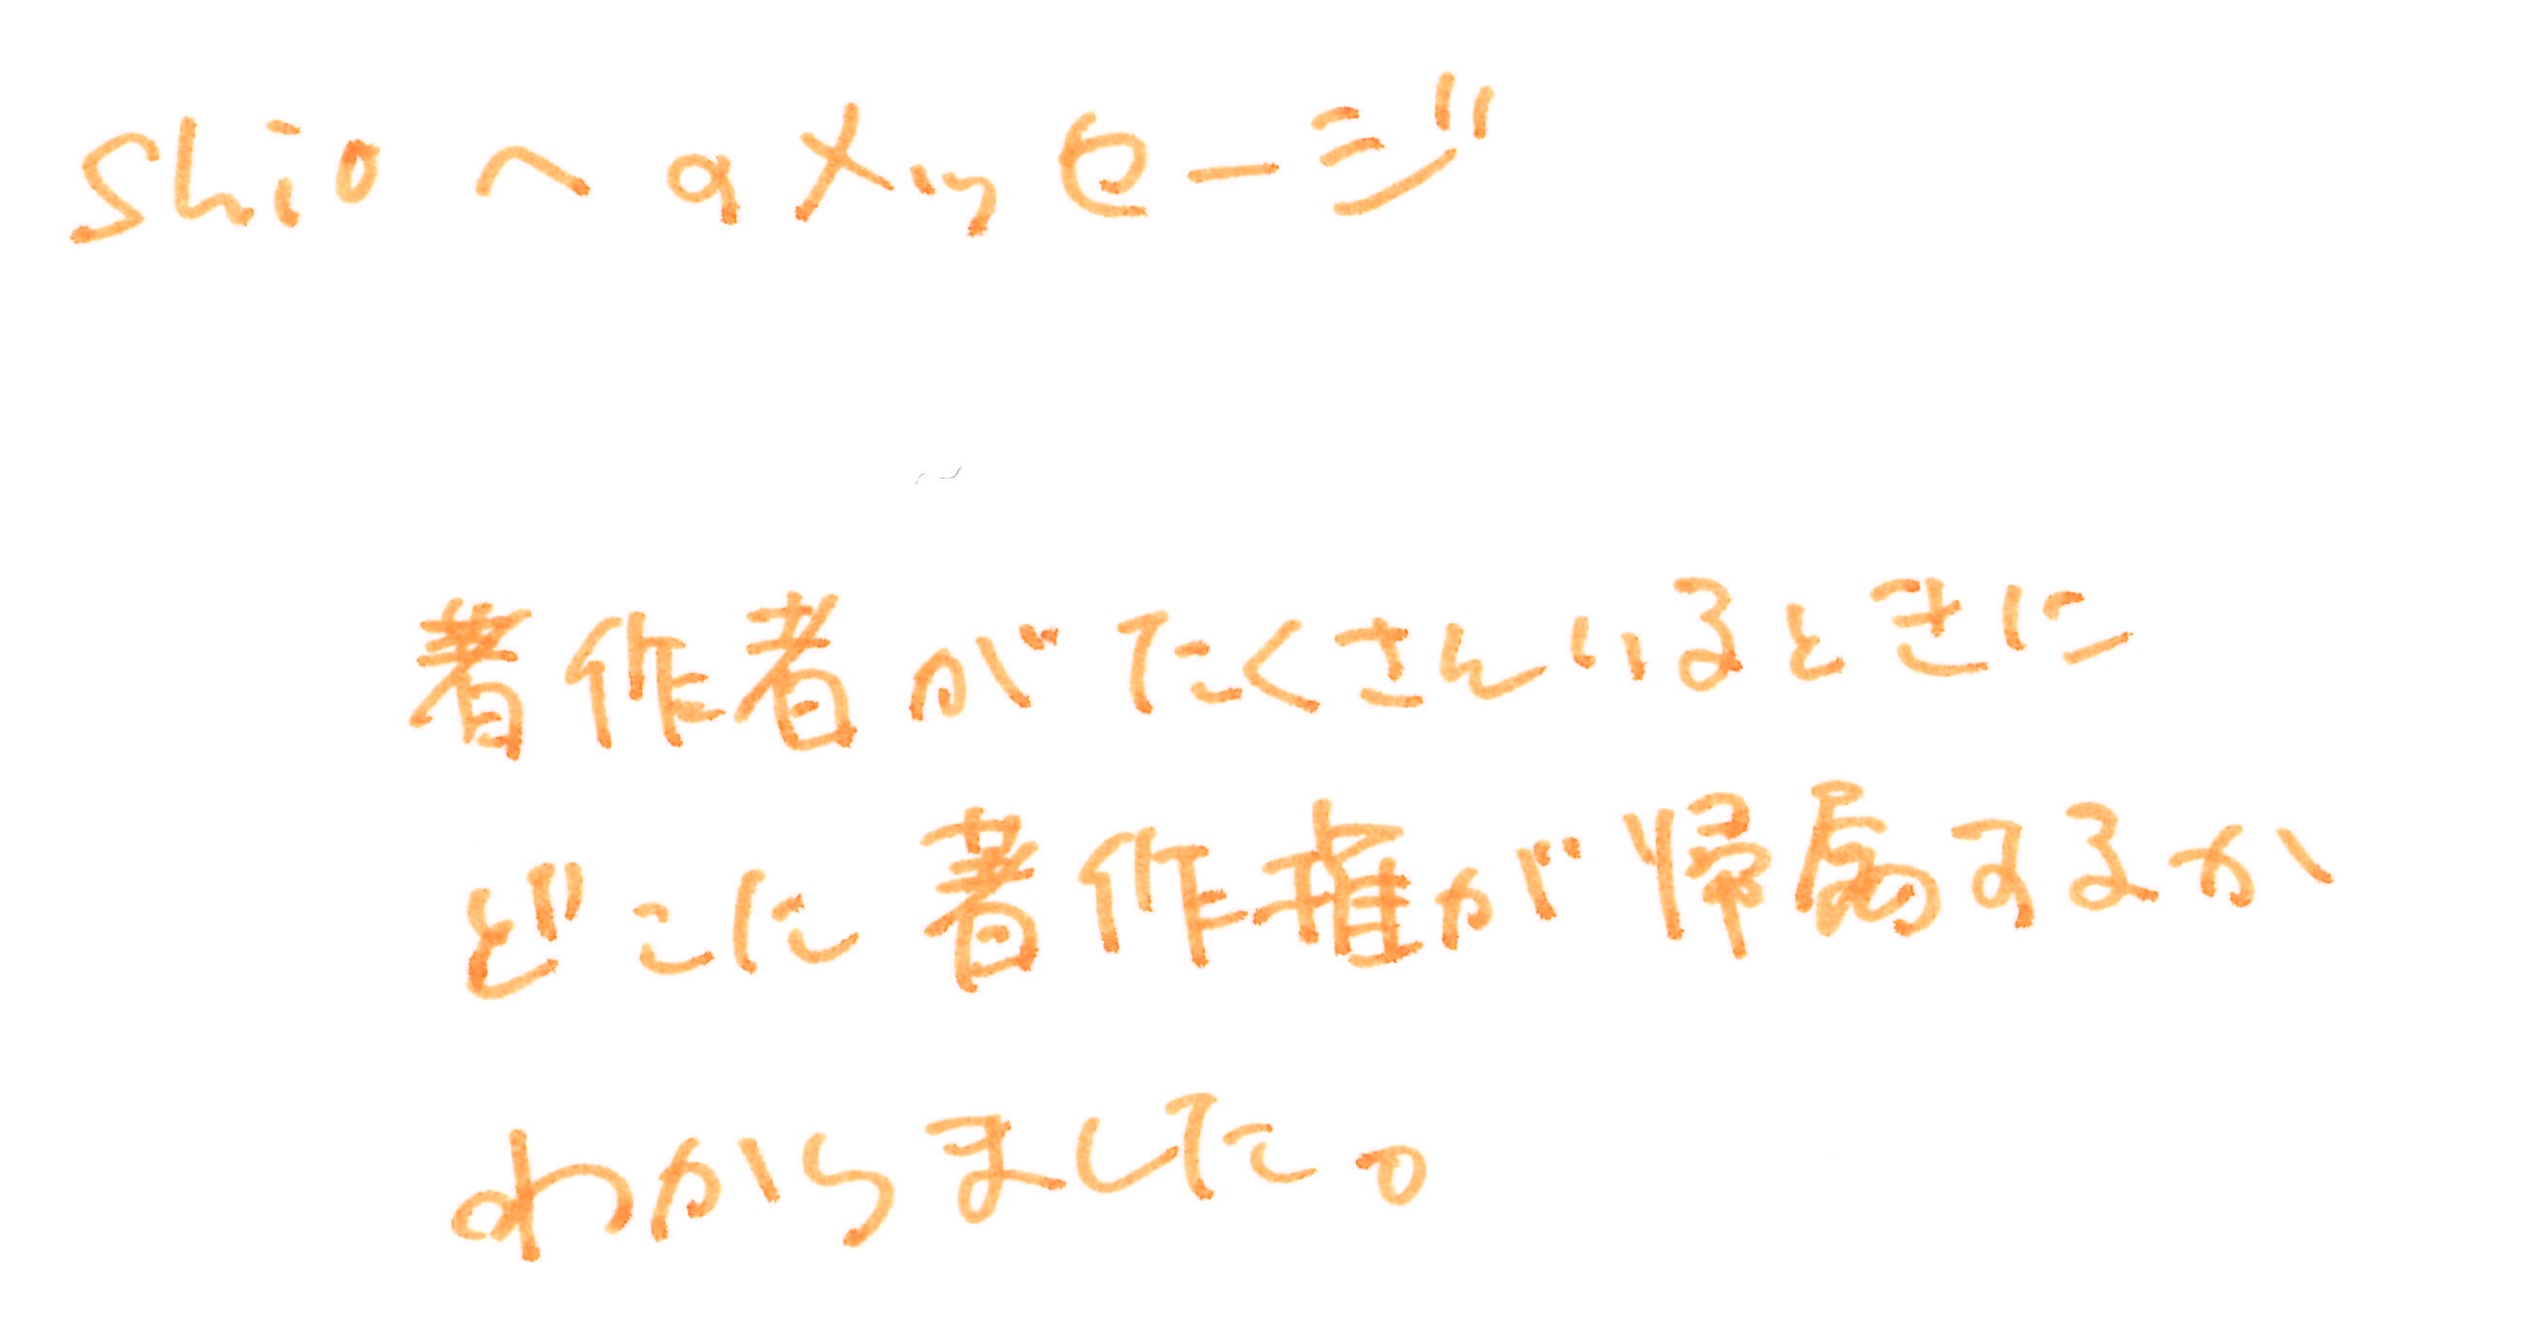 shioへのメッセージ
著作者がたくさんいるときに
どこに著作権が帰属するか
わかりました。